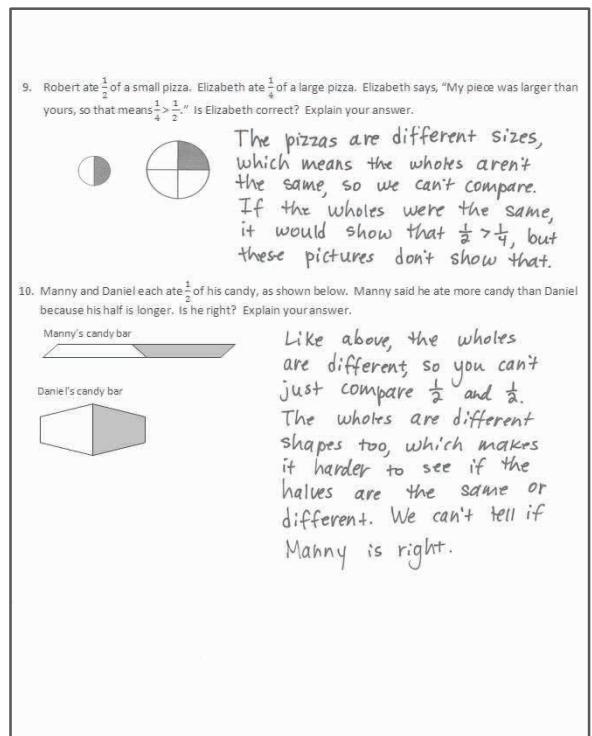 9. Robert ate 1/2 of a small pizza. Elizabeth ate 1/4 of a large pizza. Elizabeth says, "My piece was larger than
yours, so that means 1/4 > 1/2." Is Elizabeth correct? Explain your answer.
The pizzas are different sizes,
which means the wholes aren't
the same, so we can't compare.
If the wholes were the same,
it would show that 1/2 > 1/4, but
these pictures don't show that.
10. Manny and Daniel each ate 1/2 of his candy, as shown below. Manny said he ate more candy than Daniel
because his half is longer. Is he right? Explain your answer.
Manny's candy bar
Daniel's candy bar
Like above, the wholes
are different, so you can't
just compare 1/2 and 1/2.
The wholes are different
shapes too, which makes
it harder to see if the
halves are the same or
different. We can't tell if
Manny is right.